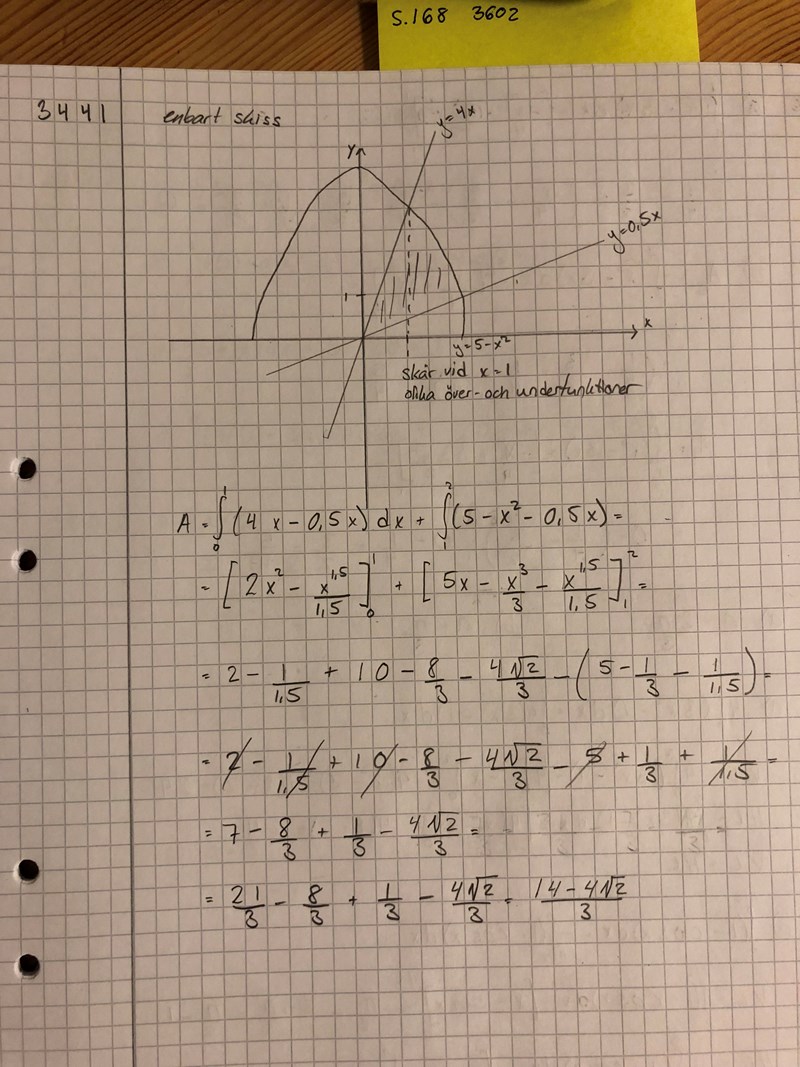 S.168 3602
3441 enbart skiss
y=4x
y
y=0,5x
1
x
y=5-x²
skär vid x=1
olika över- och underfunktioner
A = ∫₀¹ (4x - 0,5x) dx + ∫₁² (5 - x² - 0,5x) =
= [2x² - x^1,5/1,5]₀¹ + [5x - x³/3 - x^1,5/1,5]₁² =
= 2 - 1/1,5 + 10 - 8/3 - 4√2/3 - (5 - 1/3 - 1/1,5) =
= 2 - 1/1,5 + 10 - 8/3 - 4√2/3 - 5 + 1/3 + 1/1,5 =
= 7 - 8/3 + 1/3 - 4√2/3 =
= 21/3 - 8/3 + 1/3 - 4√2/3 = (14 - 4√2)/3